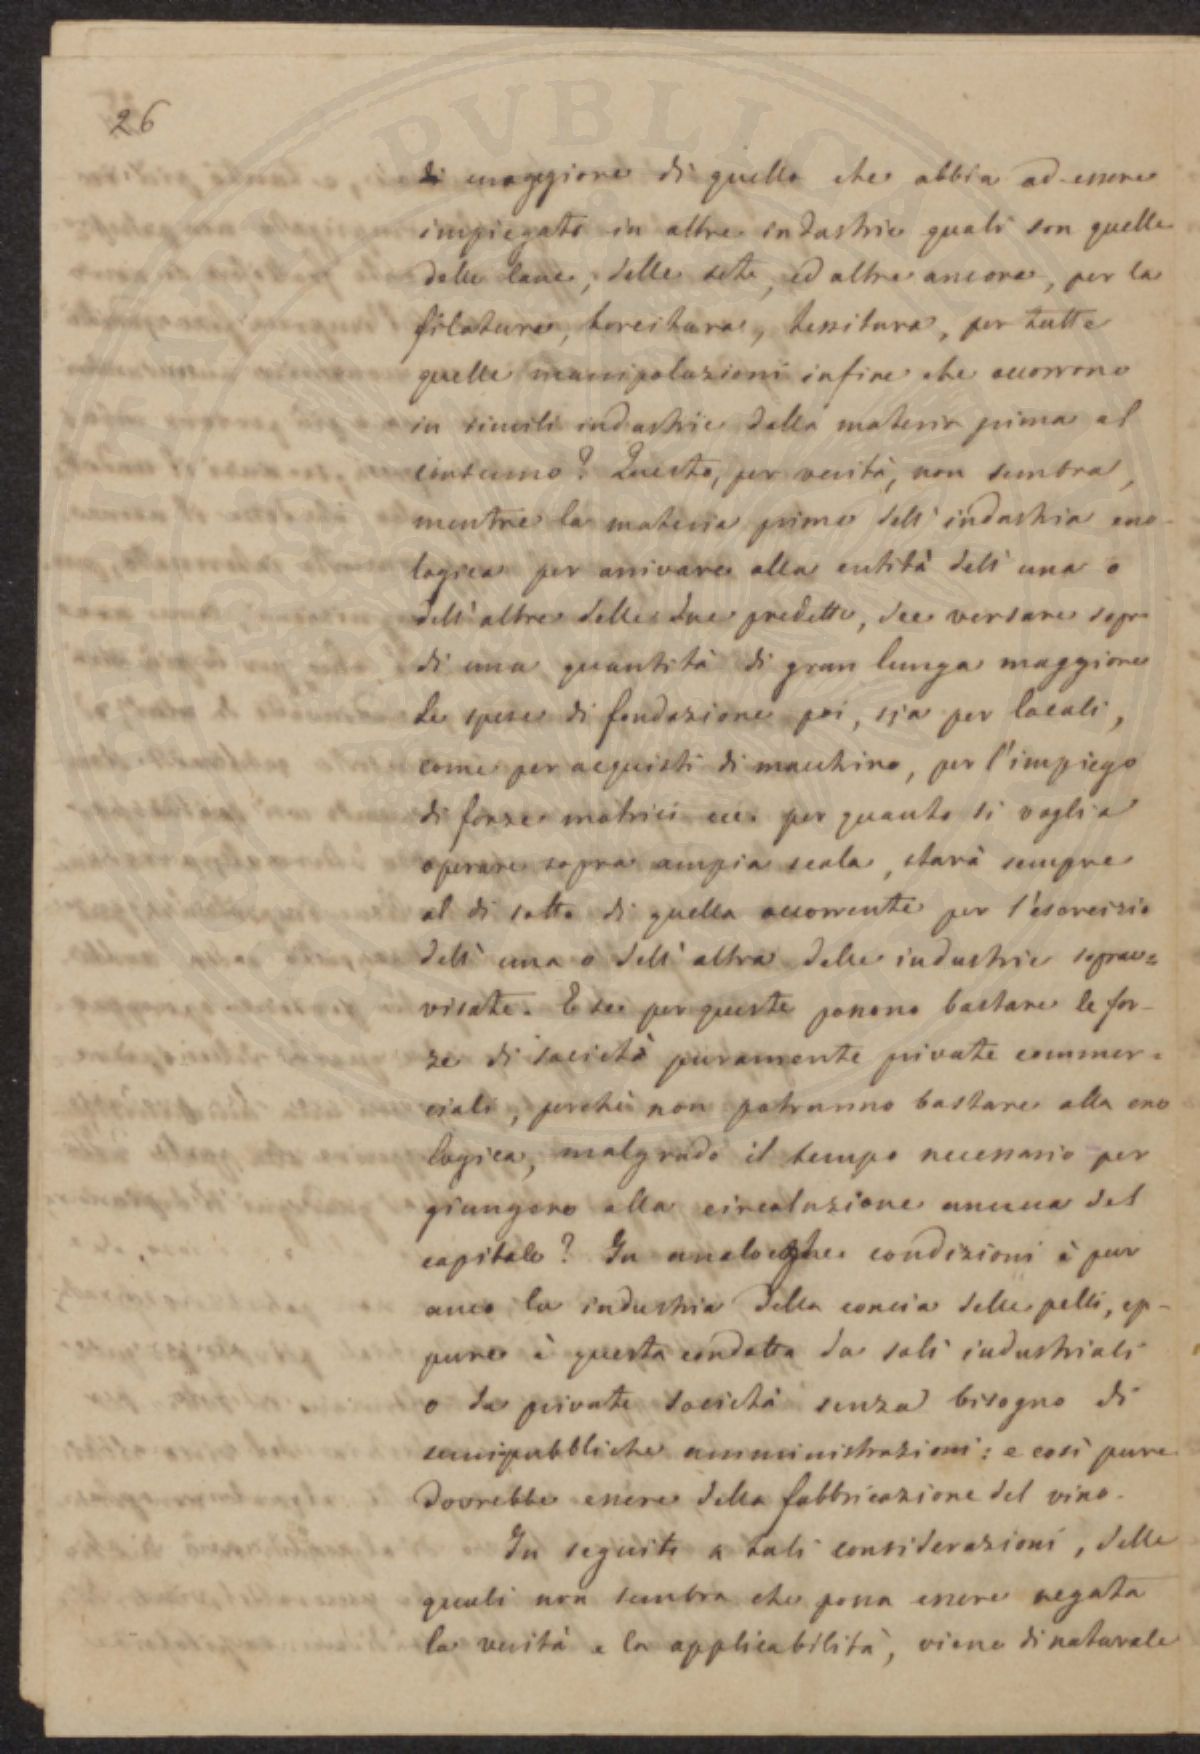 26
di maggiore di quello che abbia ad essere
impiegato in altre industrie quali son quelle
delle lane, delle sete, ed altre ancora, per la
filatura, torcitura, tessitura, per tutte
quelle manipolazioni infine che occorrono
in simili industrie dalla materia prima al
consumo? Questo, per verità, non sembra,
mentre la materia prima dell'industria eno-
logica per arrivare alla entità dell'una o
dell'altra delle due predette, dee versare sopra
di una quantità di gran lunga maggiore
Le spese di fondazione poi, sia per locali,
come per acquisti di macchine, per l'impiego
di forze motrici ecc. per quanto si voglia
operare sopra ampia scala, starà sempre
al di sotto di quella occorrente per l'esercizio
dell'una o dell'altra delle industrie soprav=
visate. E se per queste possono bastare le for-
ze di società puramente private commer-
ciali, perchè non potranno bastare alla eno
logica, malgrado il tempo necessario per
giungere alla circolazione annua del
capitale? In analoghe condizioni è pur
anco la industria della concia delle pelli, ep-
pure è questa condotta da soli industriali
o da private società senza bisogno di
semipubbliche amministrazioni: e così pure
dovrebbe essere della fabbricazione del vino.
In seguito a tali considerazioni, delle
quali non sembra che possa essere negata
la verità e la applicabilità, viene di naturale
PVBLICA